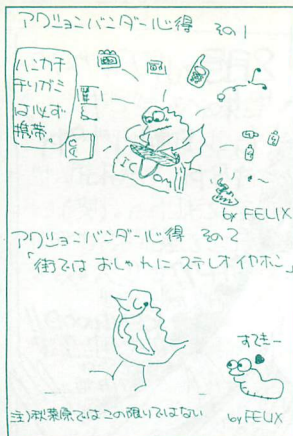 アクションバンダー心得 その1
ハンカチ
チリガミ
は必ず
携帯。
ICOM
by FELIX
アクションバンダー心得 その2
「街では おしゃれに ステレオイヤホン」
すてきー
注)秋葉原ではこの限りではない
by FELIX